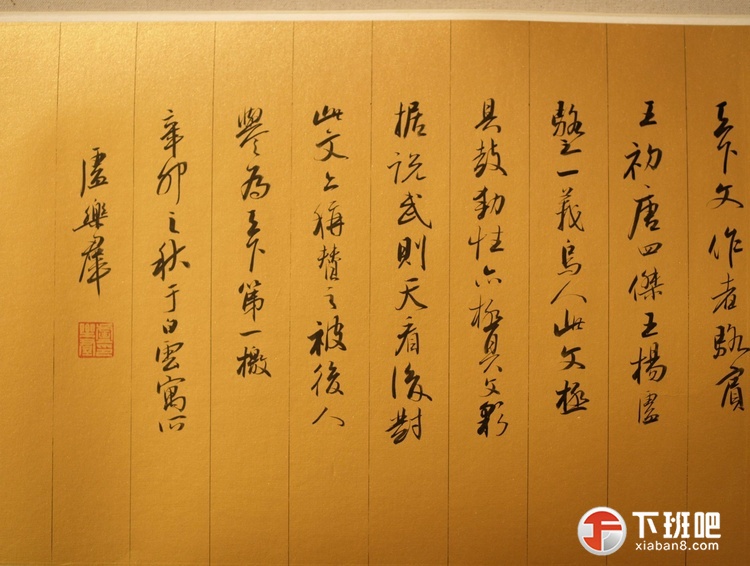 天下文作者駱賓
王初唐四傑王楊盧
駱之一義烏人此文極
具鼓動性亦極具文彩
据说武則天看後對
此文稱賛之被後人
譽為天下第一檄
辛卯之秋于白雲寓所
盧樂群
下班吧
xiaban8.com